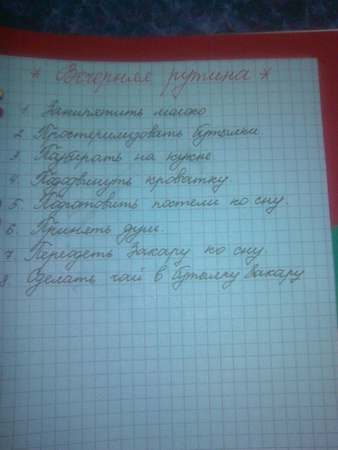 * Вечерняя рутина *
1. Закипятить молоко
2. Простерилизовать бутылки
3. Поубирать на кухне
4. Пододвинуть кроватку.
5. Подготовить постели ко сну
6. Принять душ.
7. Переодеть Закару ко сну.
8. Сделать чай в бутылку Закару